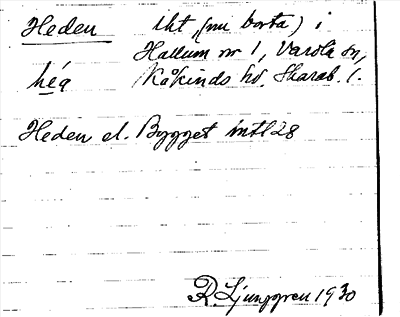 Heden lht, (nu borta) i
Hallum nr 1, Varola sn,
héa Kåkinds hd. Skarab. l.
Heden el. Bygget intl 28
R. Ljunggren 1930